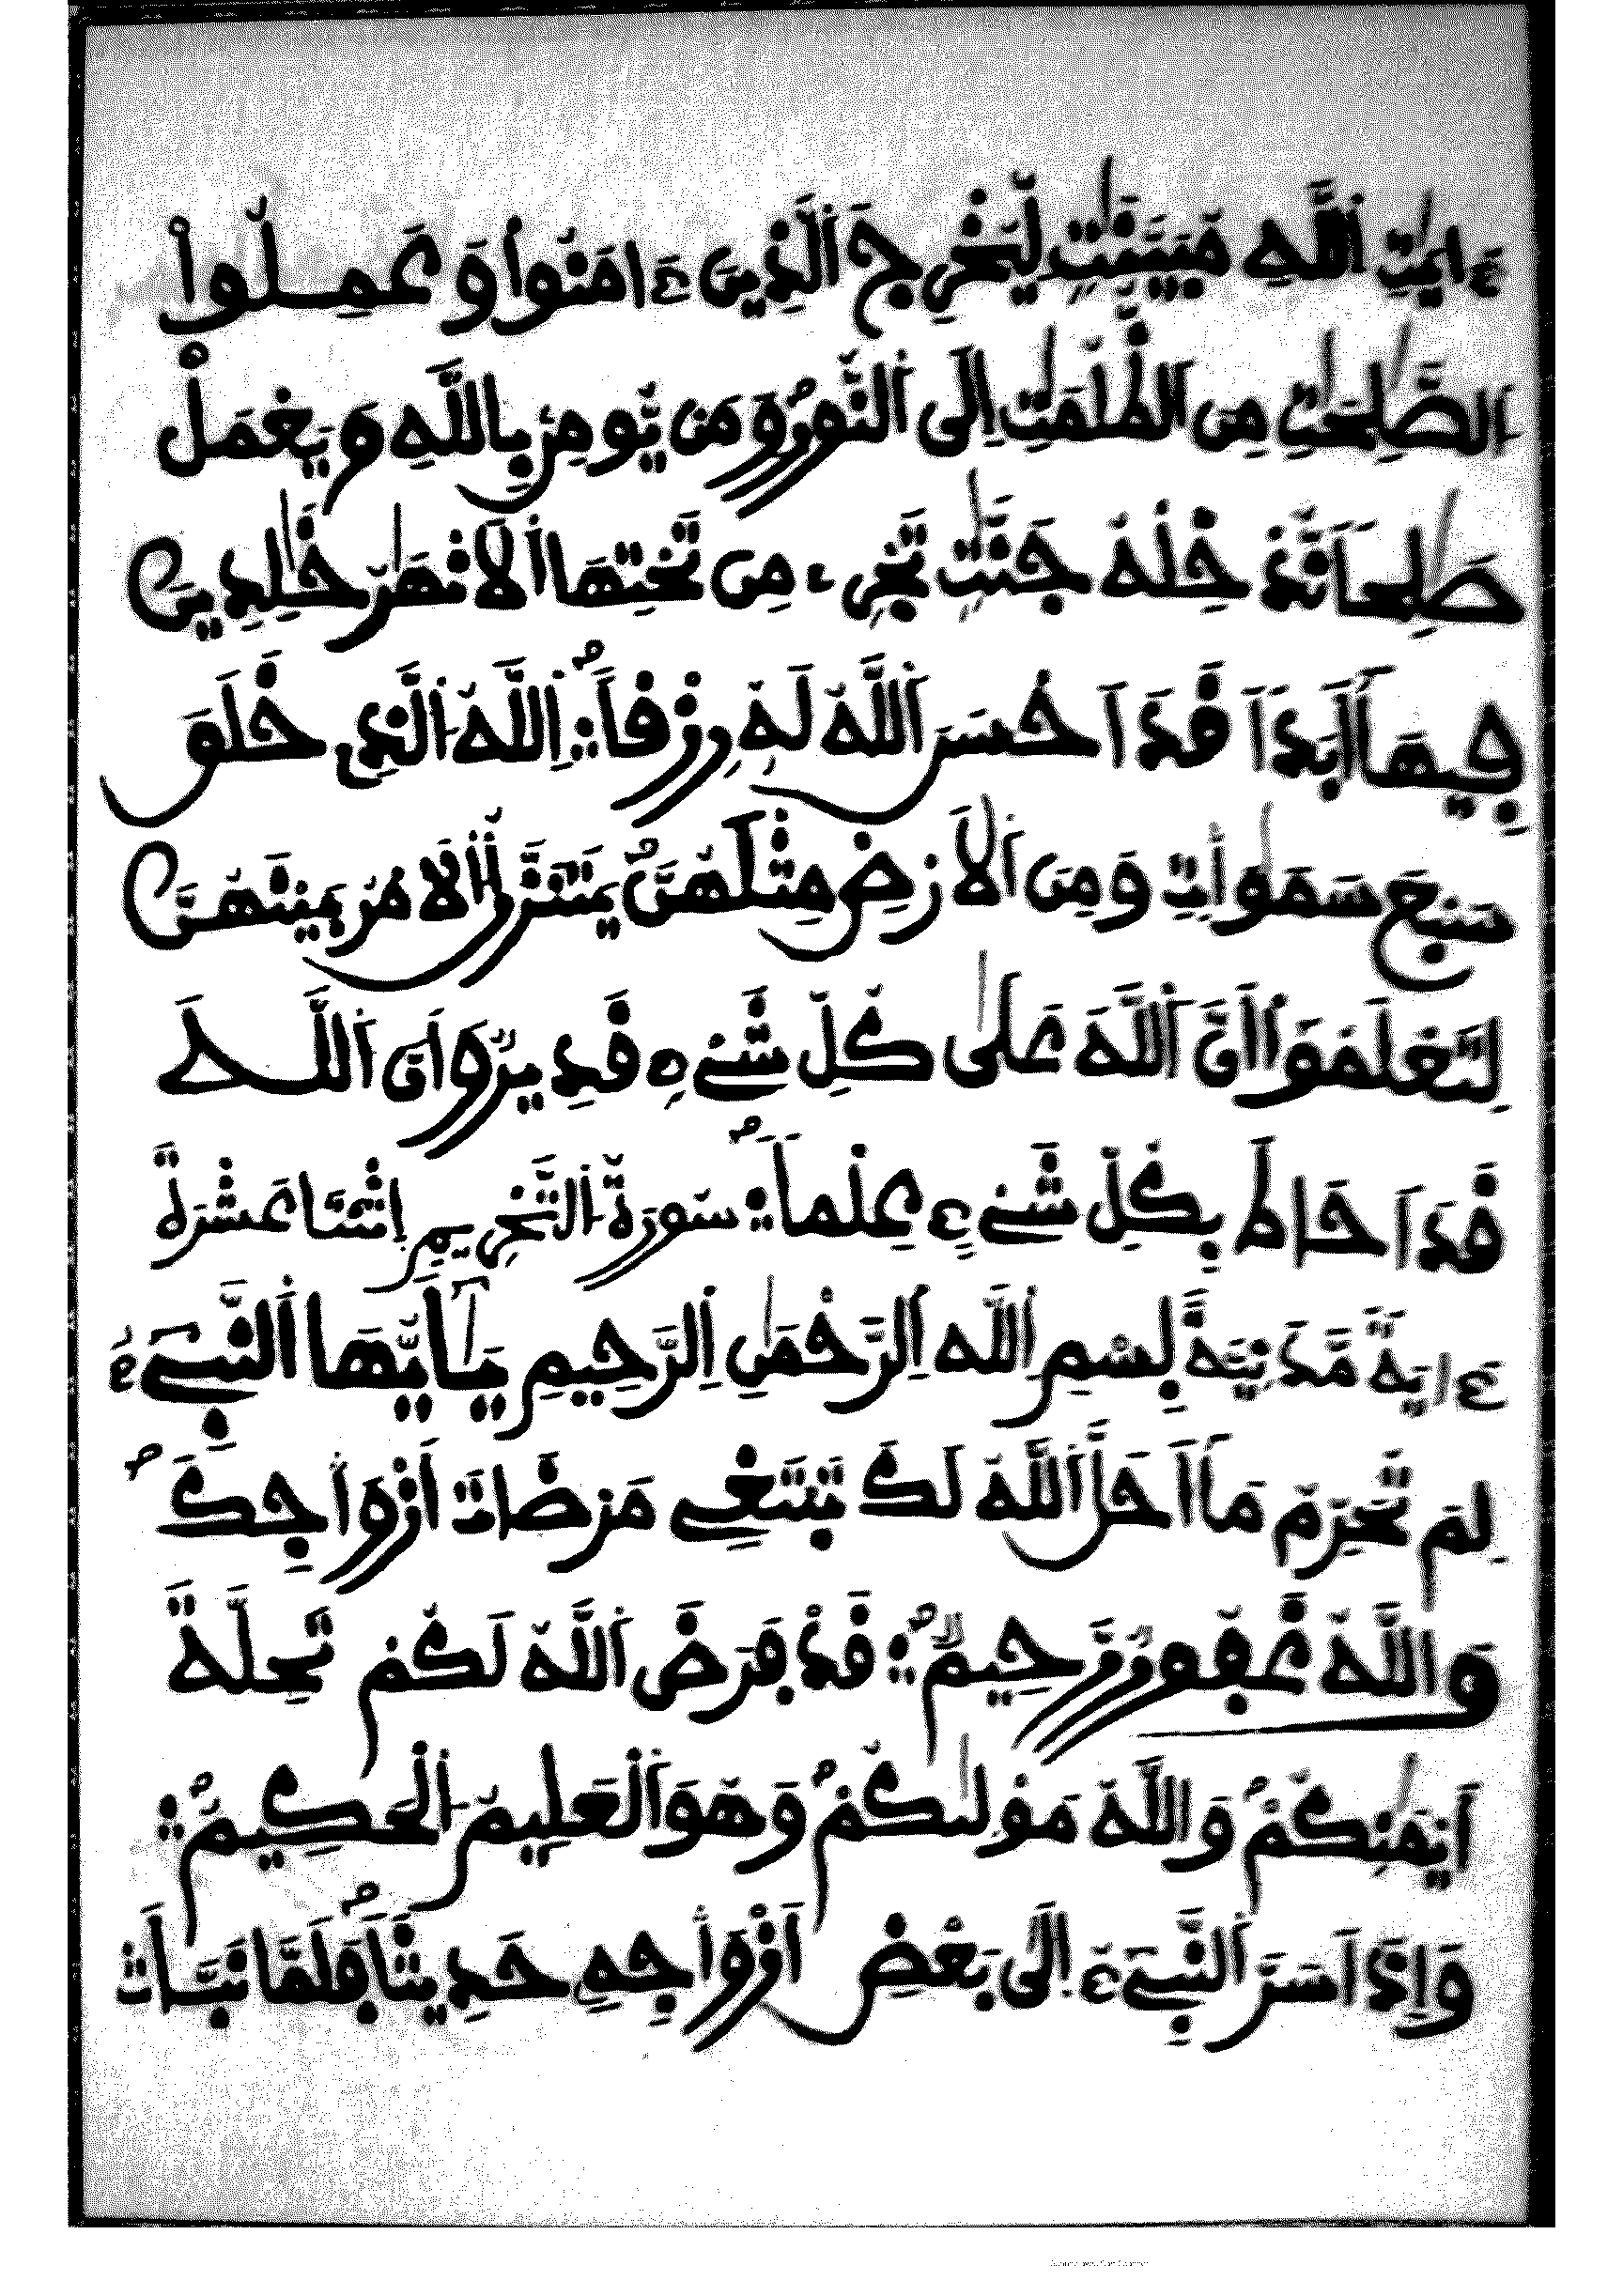 ءَايَٰتِ اَ۬للَّهِ مُبَيَّنَٰتٖ لِّيُخْرِجَ اَ۬لذِينَ ءَامَنُواْ وَعَمِلُواْ
اُ۬لصَّٰلِحَٰتِ مِنَ اَ۬لظُّلُمَٰتِ إِلَى اَ۬لنُّورِ وَمَنْ يُّومِنْ بِاللَّهِ وَيَعْمَلْ
صَٰلِحاً نُّدْخِلْهُ جَنَّٰتٖ تَجْرِے مِن تَحْتِهَا اَ۬لَانْهَٰرُ خَٰلِدِينَ
فِيهَا أَبَداً قَدَ اَحْسَنَ اَ۬للَّهُ لَهُۥ رِزْقاً اِ۬للَّهُ اُ۬لذِے خَلَقَ
سَبْعَ سَمَٰوَٰتٖ وَمِنَ اَ۬لَارْضِ مِثْلَهُنَّ يَتَنَزَّلُ اُ۬لَامْرُ بَيْنَهُنَّ
لِتَعْلَمُواْ أَنَّ اَ۬للَّهَ عَلَىٰ كُلِّ شَےْءٖ قَدِيرٞ وَأَنَّ اَ۬للَّهَ
قَدَ اَحَاطَ بِكُلِّ شَےْءٍ عِلْماً سُورَةُ اُ۬لتَّحْرِيمِ اِثْنَتَا عَشْرَةَ
ءَايَةً مَّدَنِيَّةٌ بِسْمِ اِ۬للَّهِ اِ۬لرَّحْمَٰنِ اِ۬لرَّحِيمِ يَٰأَيُّهَا اَ۬لنَّبِےٓءُ
لِمَ تُحَرِّمُ مَا أَحَلَّ اَ۬للَّهُ لَكَ تَبْتَغِے مَرْضَاتَ أَزْوَٰجِكَ
وَاللَّهُ غَفُورٞ رَّحِيمٞ قَدْ فَرَضَ اَ۬للَّهُ لَكُمْ تَحِلَّةَ
أَيْمَٰنِكُمْ وَاللَّهُ مَوْلَىٰكُمْ وَهُوَ اَ۬لْعَلِيمُ اُ۬لْحَكِيمُ
وَإِذَ اَسَرَّ اَ۬لنَّبِےٓءُ اِلَىٰ بَعْضِ أَزْوَٰجِهِ حَدِيثاً فَلَمَّا نَبَّأَتْ